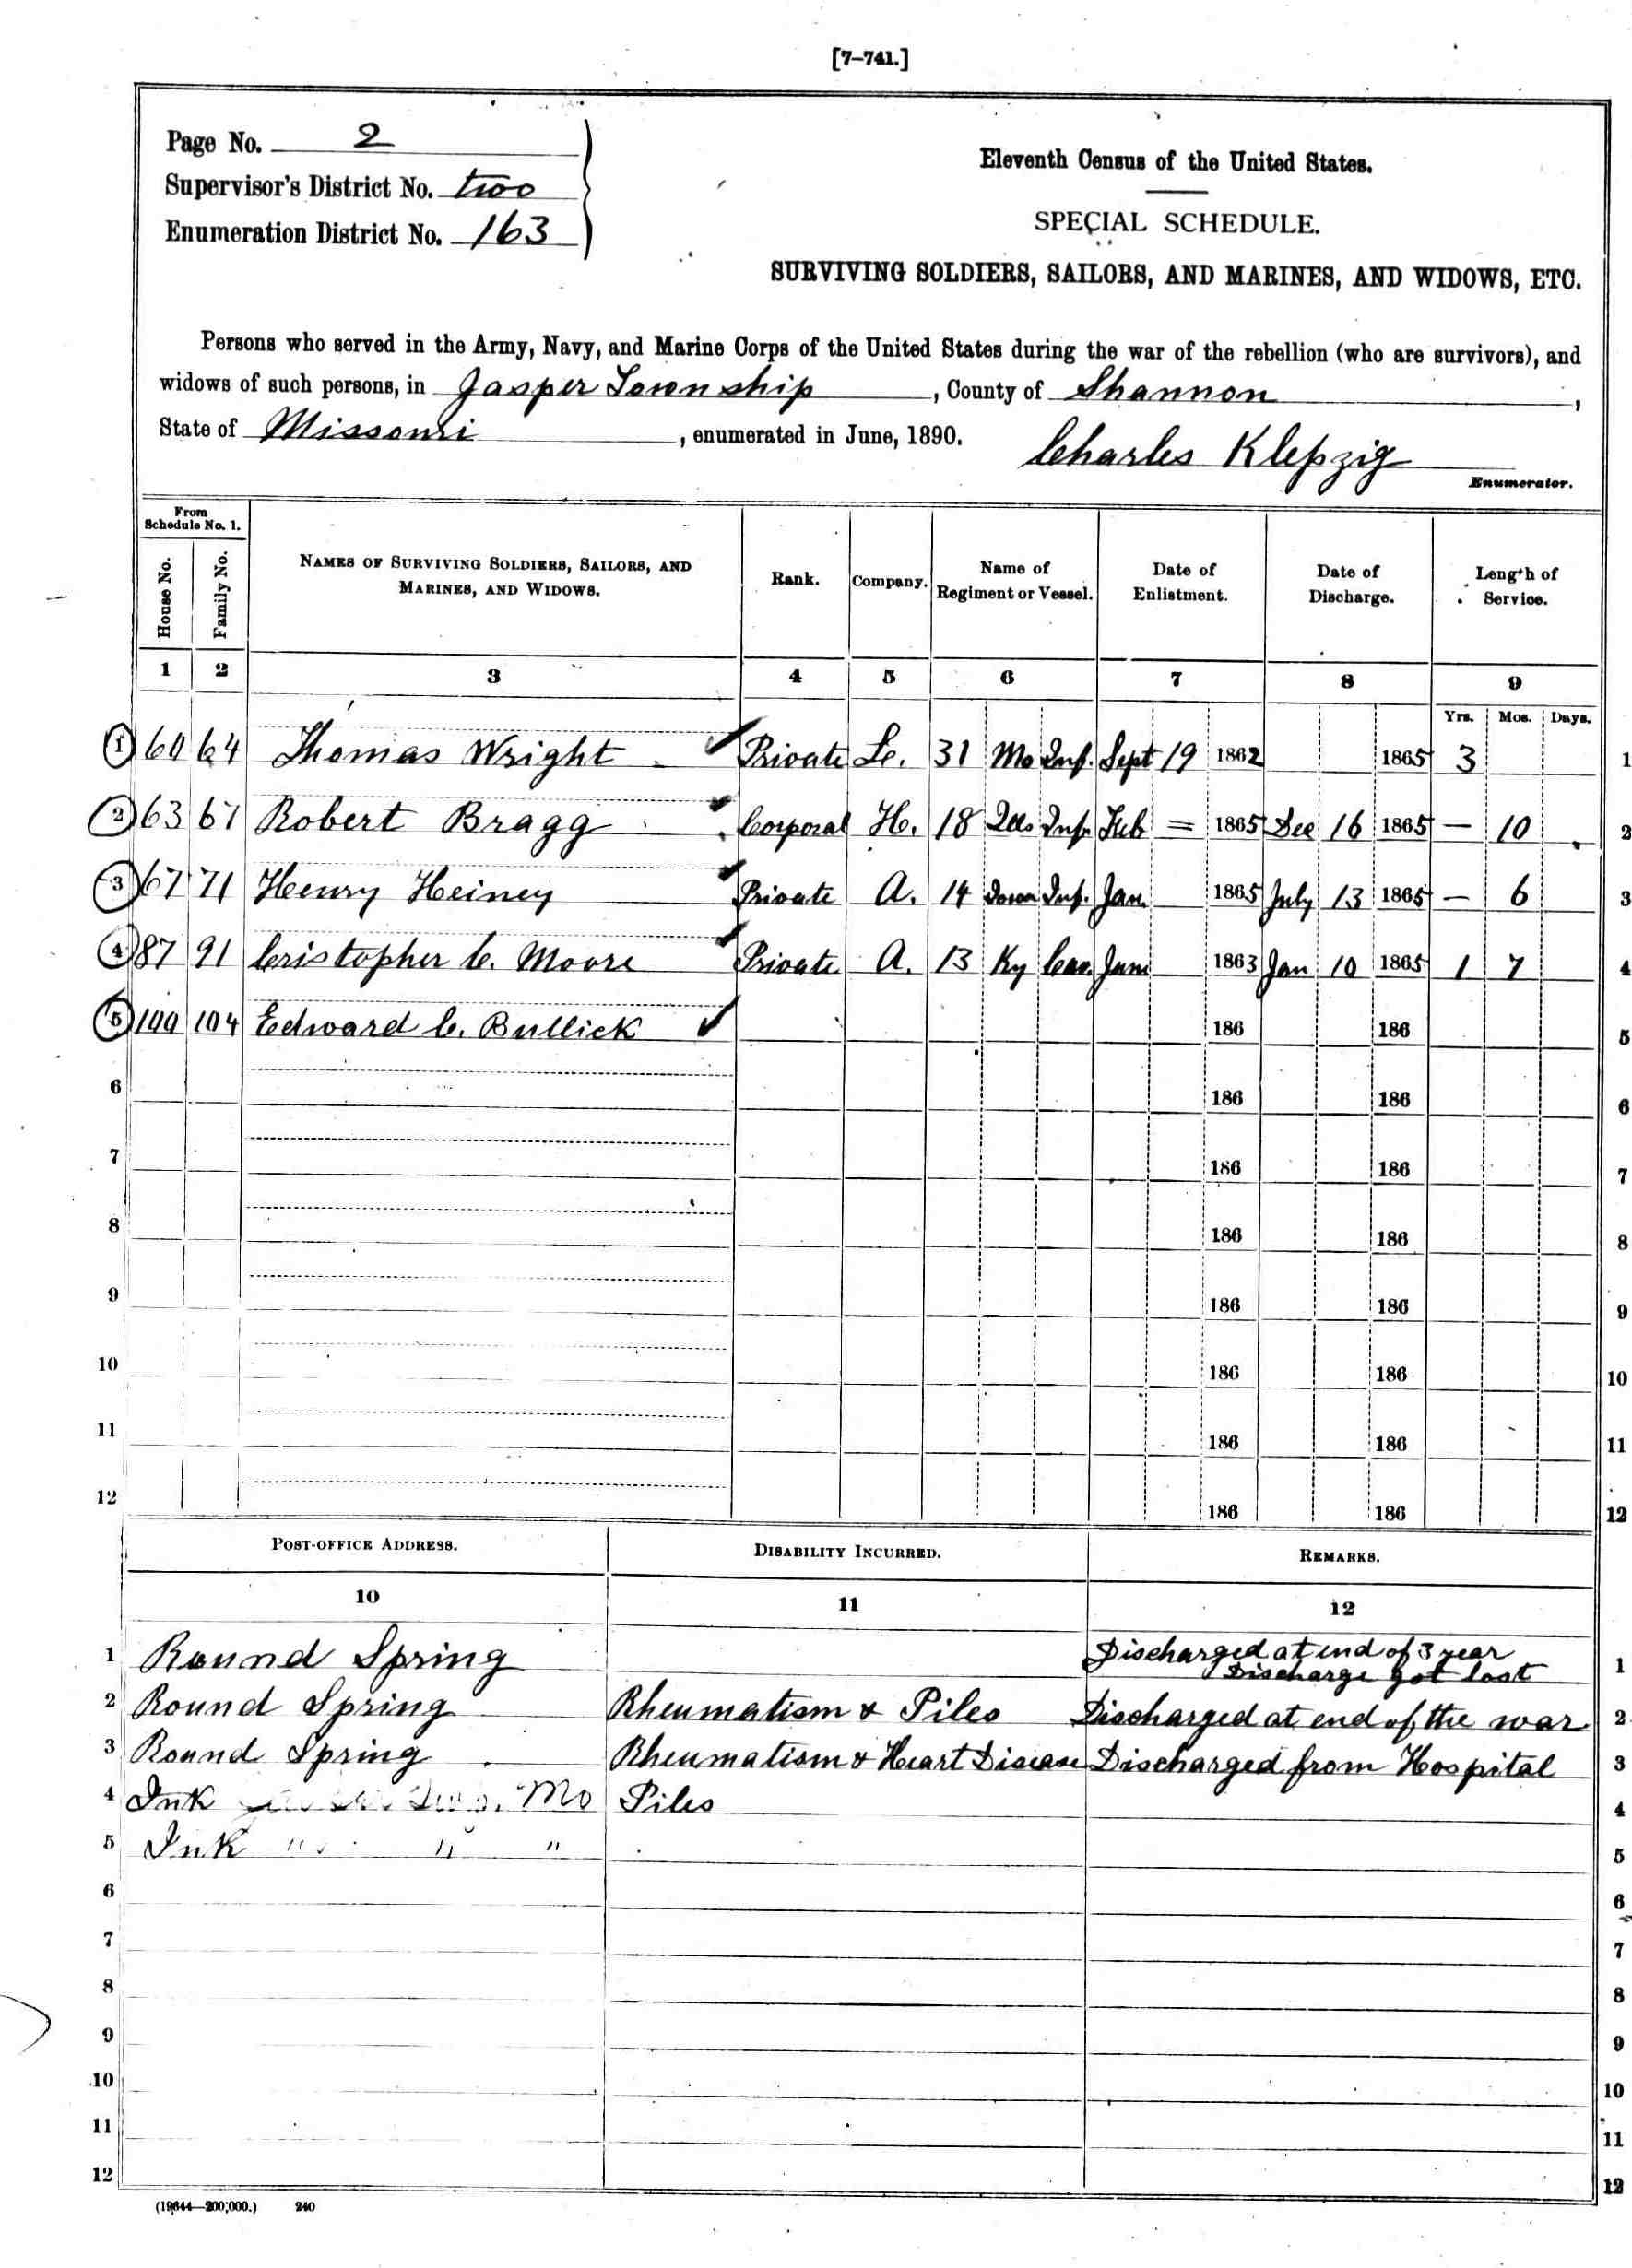 [7-741.]
Page No. 2
Supervisor's District No. two
Enumeration District No. 163
Eleventh Census of the United States.
SPECIAL SCHEDULE.
SURVIVING SOLDIERS, SAILORS, AND MARINES, AND WIDOWS, ETC.
Persons who served in the Army, Navy, and Marine Corps of the United States during the war of the rebellion (who are survivors), and
widows of such persons, in Jasper Township, County of Shannon,
State of Missouri, enumerated in June, 1890.
Charles Klepzig
Enumerator.
From Schedule No. 1.
House No. Family No. NAMES OF SURVIVING SOLDIERS, SAILORS, AND MARINES, AND WIDOWS. Rank. Company. Name of Regiment or Vessel. Date of Enlistment. Date of Discharge. Length of Service.
1 2 3 4 5 6 7 8 9
Yrs. Mos. Days.
1 60 64 Thomas Wright Private 31 Mo Inf. Sept 19 1862 1865 3 1
2 63 67 Robert Bragg Corporal H. 18 Ills Inf. Feb = 1865 Dec 16 1865 — 10 2
3 67 71 Henry Heiney Private A. 14 Inf. Jan. 1865 July 13 1865 — 6 3
4 87 91 Cristopher C. Moore Private A. 13 Ky Cav. June 1863 Jan 10 1865 1 7 4
5 100 104 Edward C. Bullick 186 186 5
6 186 186 6
7 186 186 7
8 186 186 8
9 186 186 9
10 186 186 10
11 186 186 11
12 186 186 12
POST-OFFICE ADDRESS. DISABILITY INCURRED. REMARKS.
10 11 12
1 Round Spring Discharged at end of 3 year 1
Discharge got lost
2 Round Spring Rheumatism & Piles Discharged at end of the war 2
3 Round Spring Rheumatism & Heart Disease Discharged from Hospital 3
4 Ink Mo Piles 4
5 Ink " " " 5
6 6
7 7
8 8
9 9
10 10
11 11
12 12
(19644—200,000.) 240